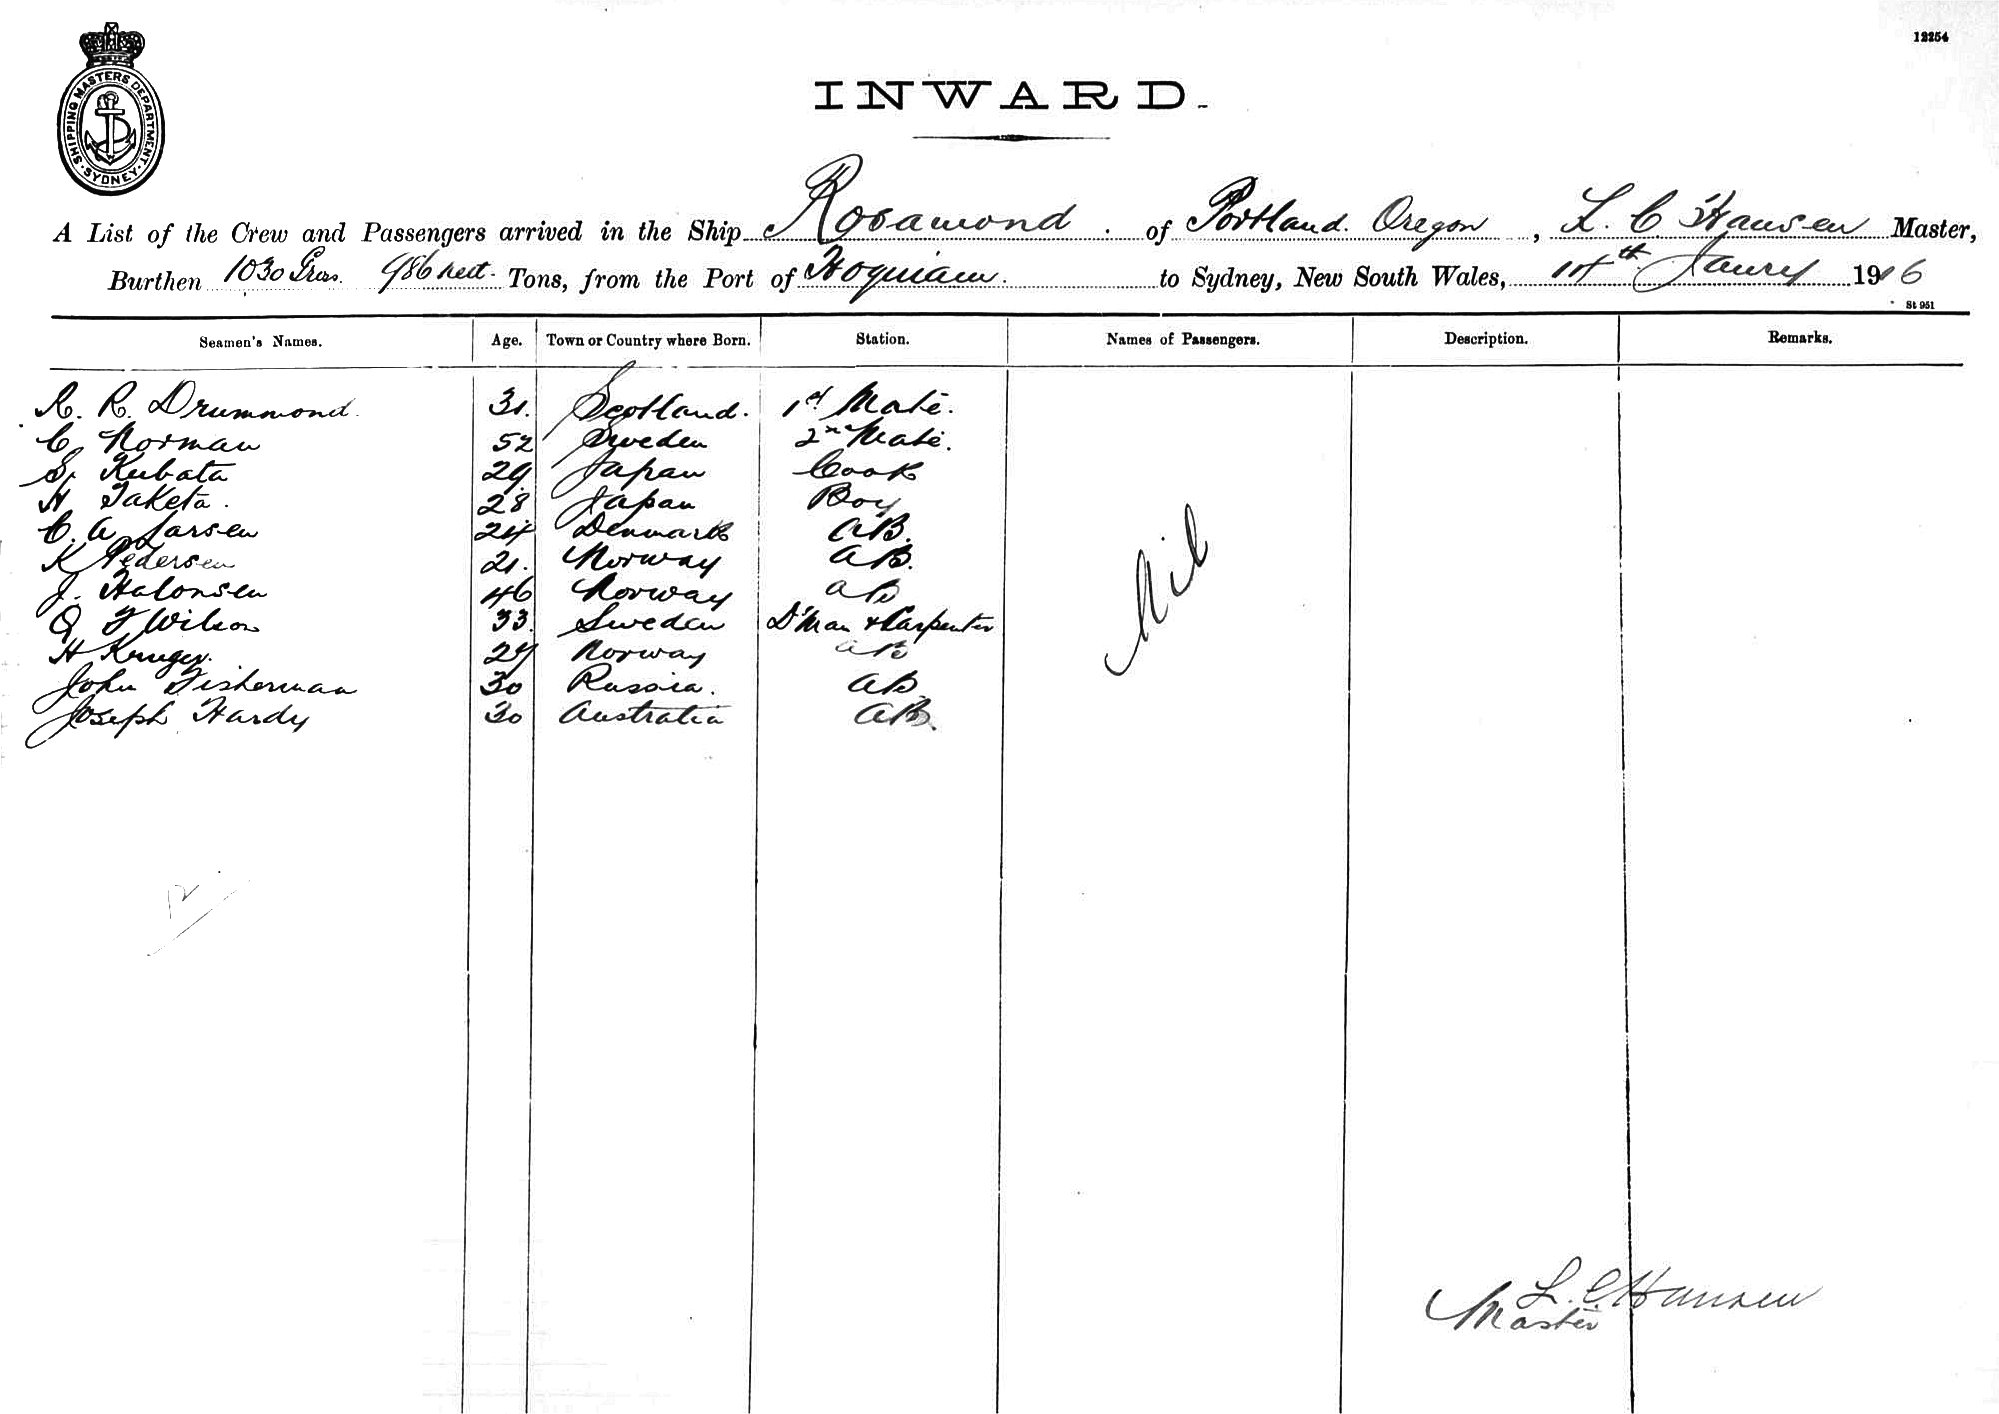 12254
SHIPPING MASTERS DEPARTMENT
SYDNEY
INWARD.
A List of the Crew and Passengers arrived in the Ship Rosamond of Portland. Oregon, L. C. Hansen Master,
Burthen 1030 Gros. 986 nett. Tons, from the Port of Hoquiam. to Sydney, New South Wales, 14th Janry 1916
St 951
Seamen's Names. Age. Town or Country where Born. Station. Names of Passengers. Description. Remarks.
R. Drummond. 31. Scotland. 1st Mate.
C. Norman 52 Sweden 2nd Mate.
S. Kubata 29 Japan Cook
H Taketa. 28 Japan Boy
C. A Larsen 24 Denmark AB.
K Pedersen 21. Norway AB.
J. Halonsen 46 Norway AB
Wilson 33. Sweden D'Man & Carpenter
H Kruger. 29 Norway AB
John Fisherman 30 Russia. AB
Joseph Hardy 30 Australia AB.
Nil
L. C Hansen
Master